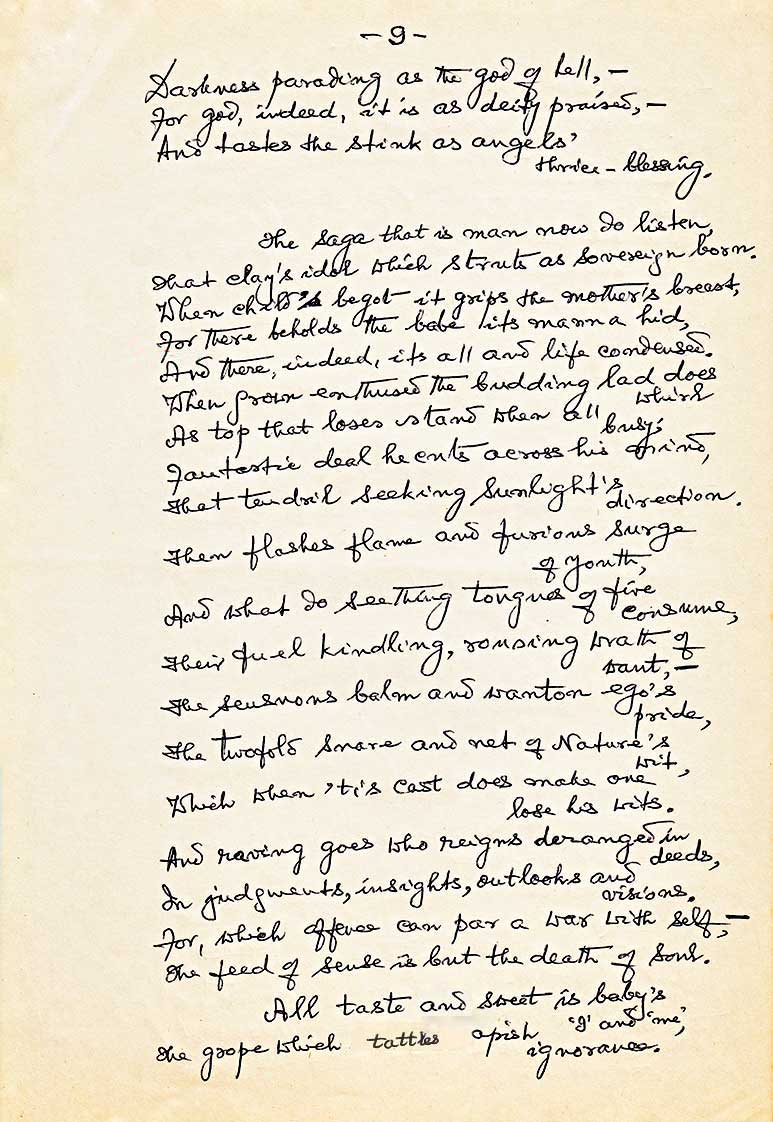 - 9 -
Darkness parading as the god of hell, —
For god, indeed, it is as deity praised, —
And tastes the stink as angels'
thrice-blessing.
The saga that is man now do listen,
That clay's idol which struts as sovereign born.
When child's begot it grips the mother's breast,
For there beholds the babe its manna hid,
And there, indeed, its all and life condensed.
When grown enthused the budding lad does
which
As top that loses stand when all
busy;
Fantastic deal he cuts across his mind,
That tendril seeking sunlight's
direction.
Then flashes flame and furious surge
of youth,
And what do seething tongues of fire
consume,
Their fuel kindling, rousing wrath of
want, —
The sensuous balm and wanton ego's
pride,
The twofold snare and net of Nature's
wit,
Which when 'tis cast does make one
lose his wits.
And raving goes who reigns deranged in
deeds,
In judgments, insights, outlooks and
visions.
For, which offence can par a war with self, —
The feed of sense is but the death of soul.
All taste and sweet is baby's
'I' and 'me',
The grope which tattles apish
ignorance.